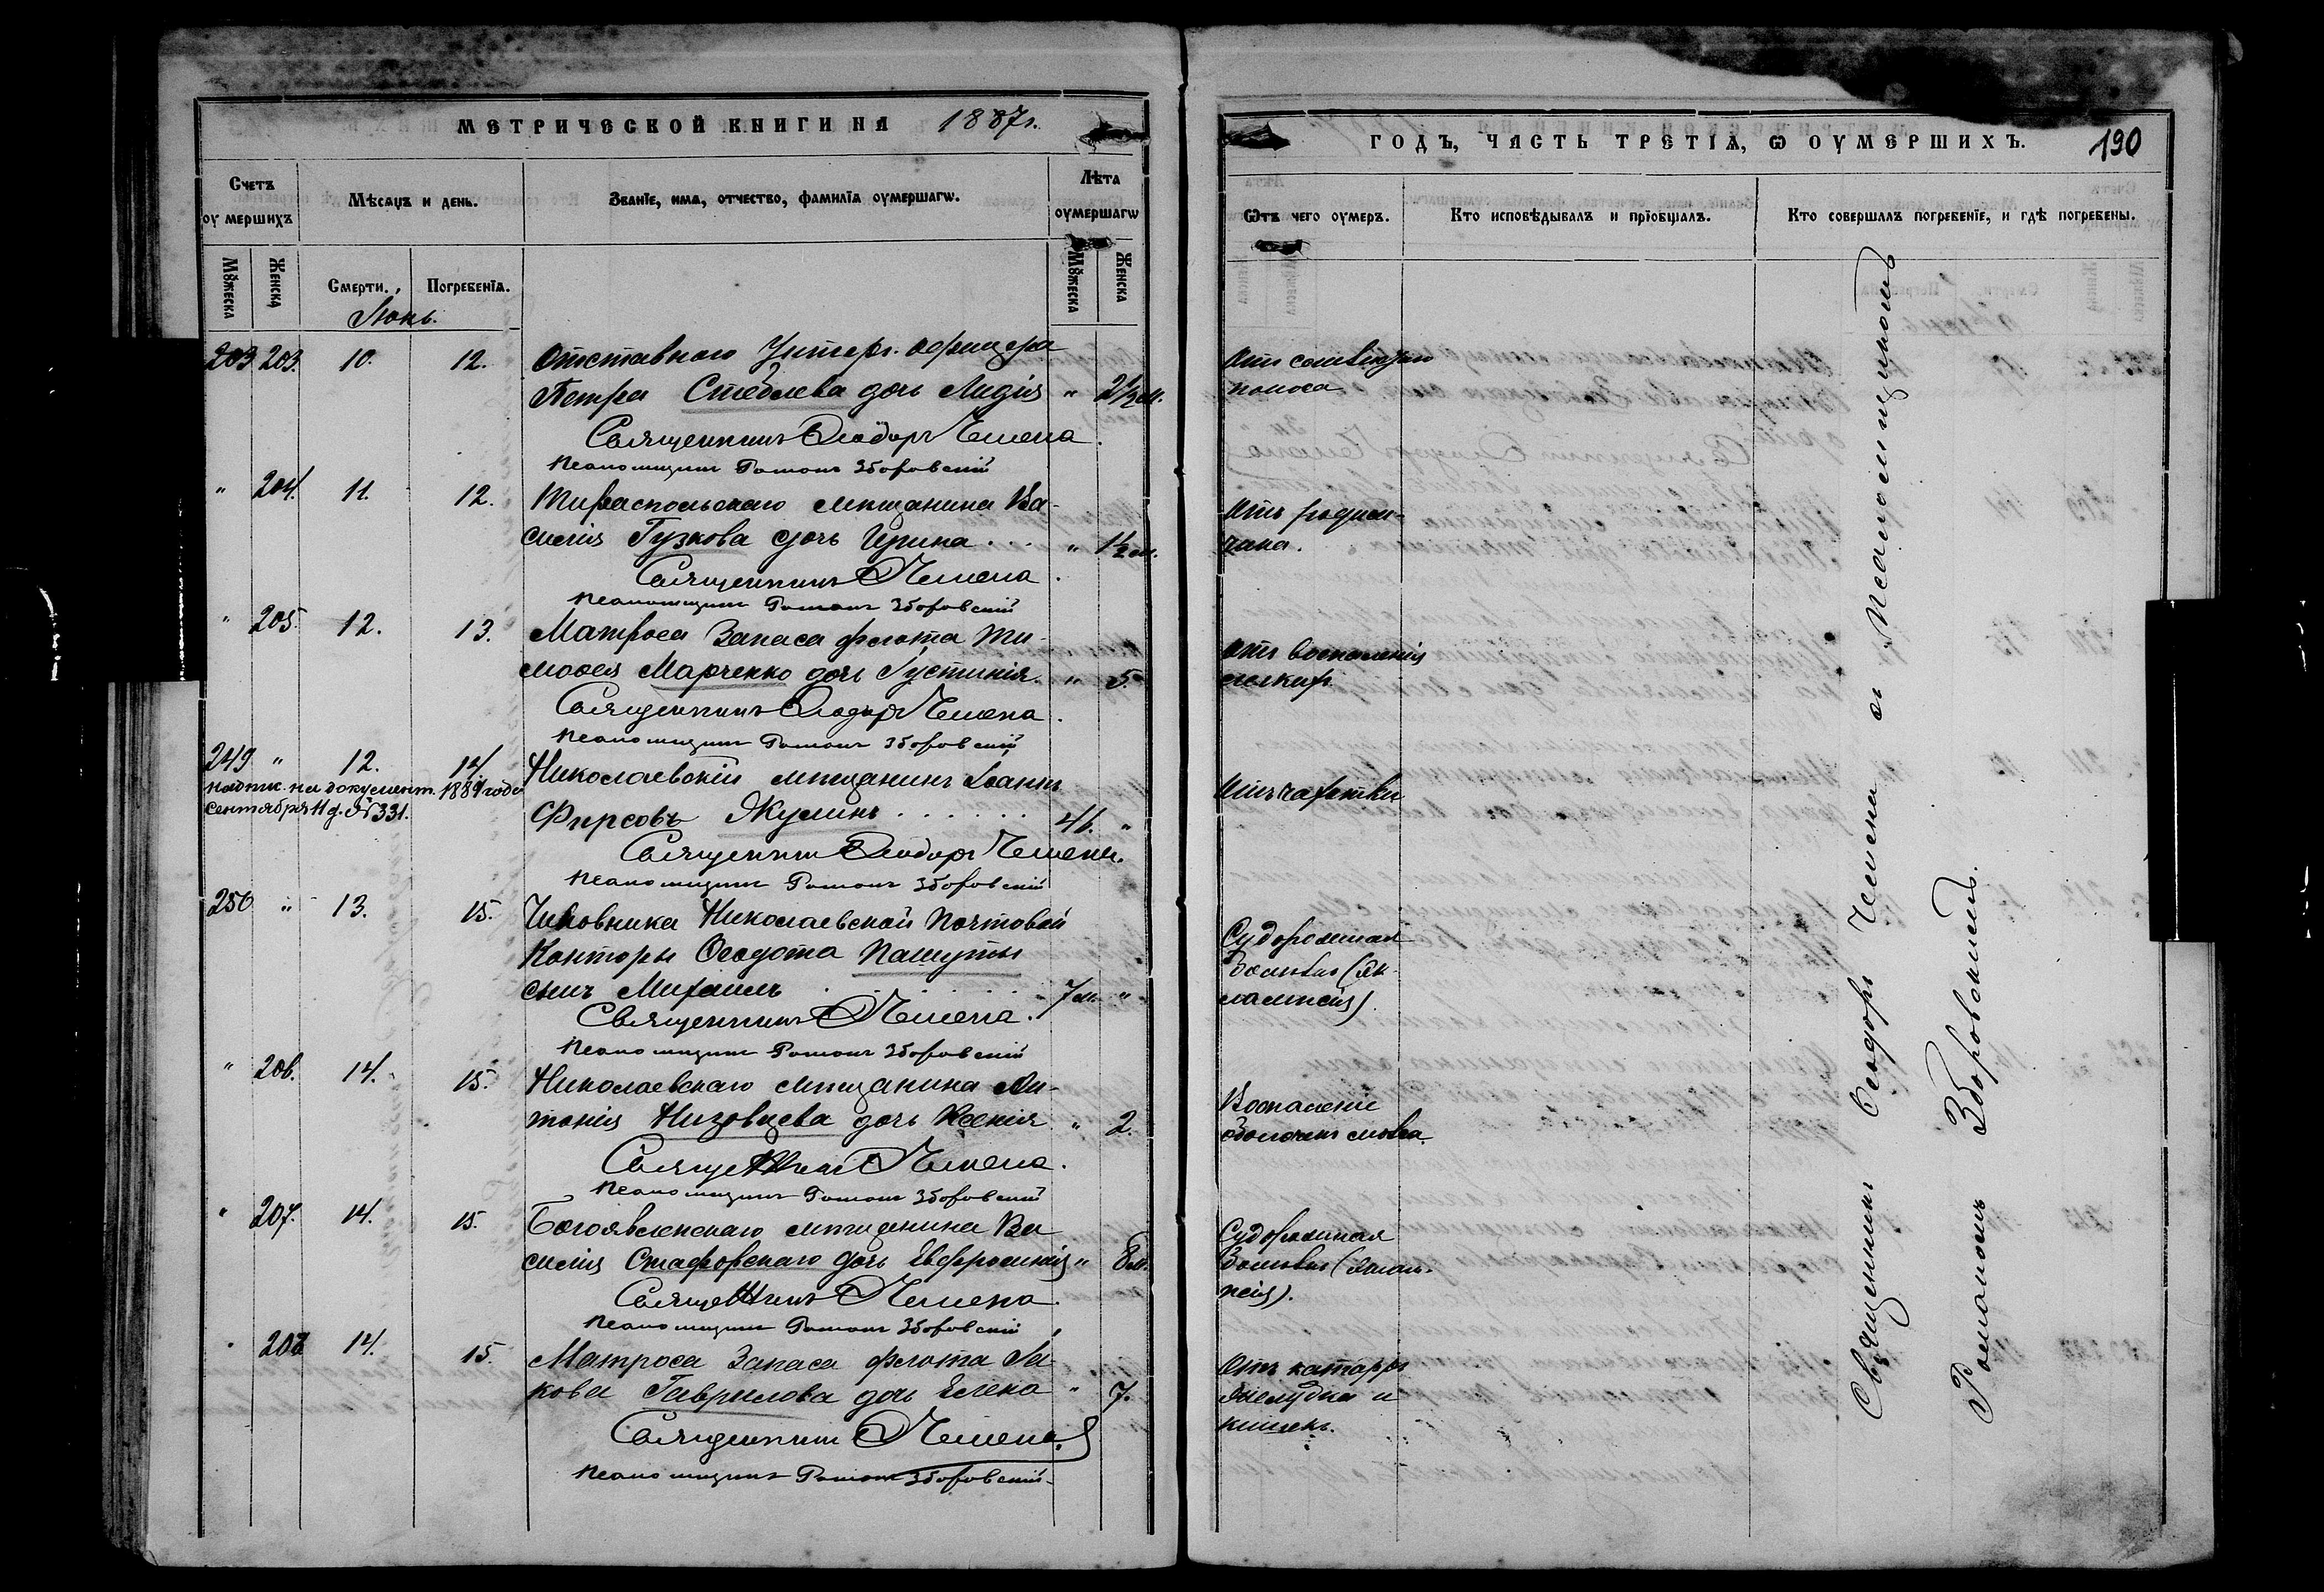 МЕТРИЧЕСКОЙ КНИГИ НА 1887 г.
Счетъ оумершихъ
Мѣсяцъ и день.
Званїе, имя, отчество, фамилїя оумершагѡ.
Лѣта оумершагѡ
Мꙋжеска
Женска
Смерти.
Погребенїя.
Мꙋжеска
Женска
Іюнь.
203. 10. 12. Отставного Унтеръ-офицера
Петра Стеблева дочь Лидія " 2½ м.
Священникъ Ѳеодоръ Чемена.
Псаломщикъ Романъ Зборовскій
" 204. 11. 12. Тираспольскаго мѣщанина Ва-
силія Гузкова дочь Ирина . . . " 1½ м.
Священникъ Ѳ Чемена.
Псаломщикъ Романъ Зборовскій
" 205. 12. 13. Матроса Запаса флота Ти-
моѳея Марченко дочь Іустинія. " 5.
Священникъ Ѳеодоръ Чемена.
Псаломщикъ Романъ Зборовскій
249 " 12. 14 Николаевскій мѣщанинъ Іоаннъ
надпис. на документ. 1889 года
Сентября 11 д. № 331.
Фирсовъ Якунинъ . . . . . . 46. "
Священникъ Ѳеодоръ Чемена.
Псаломщикъ Романъ Зборовскій
250 " 13. 15. Чиновника Николаевской Почтовой
Конторы Ѳеодота Пашуты
сынъ Михаилъ . . . . . . 7 м. "
Священникъ Ѳ Чемена.
Псаломщикъ Романъ Зборовскій
" 206. 14. 15. Николаевскаго мѣщанина Ан-
тонія Низовцева дочь Ксенія " 2.
Священникъ Ѳ Чемена.
Псаломщикъ Романъ Зборовскій
" 207. 14. 15. Богоявленскаго мѣщанина Ва
силія дочь Евфросинія " 8 м.
Священникъ Ѳ Чемена.
Псаломщикъ Романъ Зборовскій
" 208 14. 15. Матроса Запаса флота Іа-
кова Гаврилова дочь Елена " 7.
Священникъ Ѳ Чемена
Псаломщикъ Романъ Зборовскій
ГОДЪ, ЧАСТЬ ТРЕТІѦ, Ѡ ОУМЕРШИХЪ. 190
Ѿтъ чего оумеръ.
Кто исповѣдывалъ и прїобщалъ.
Кто совершалъ погребенїе, и гдѣ погребены.
Отъ
поноса
Отъ родим-
чика.
Отъ воспаленія
легкихъ
Отъ чахотки
Судорожная
болѣзнь (эк-
лампсія).
Воспаленіе
оболочекъ мозга.
Судорожная
болѣзнь (эклам-
псія).
Отъ катарра
желудка и
кишекъ.
Священникъ Ѳеодоръ Чемена съ Псаломщикомъ
Романомъ Зборовскимъ.